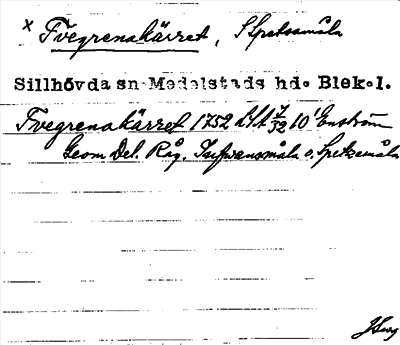 x Tvegrenakärret, Spetsamåla
Sillhövda sn Medelstads hd. Blek.l.
Tvegrenakärret 1752 LSA 7/32 101 Enström
Geom Del. Råg. o. Spetsemåla